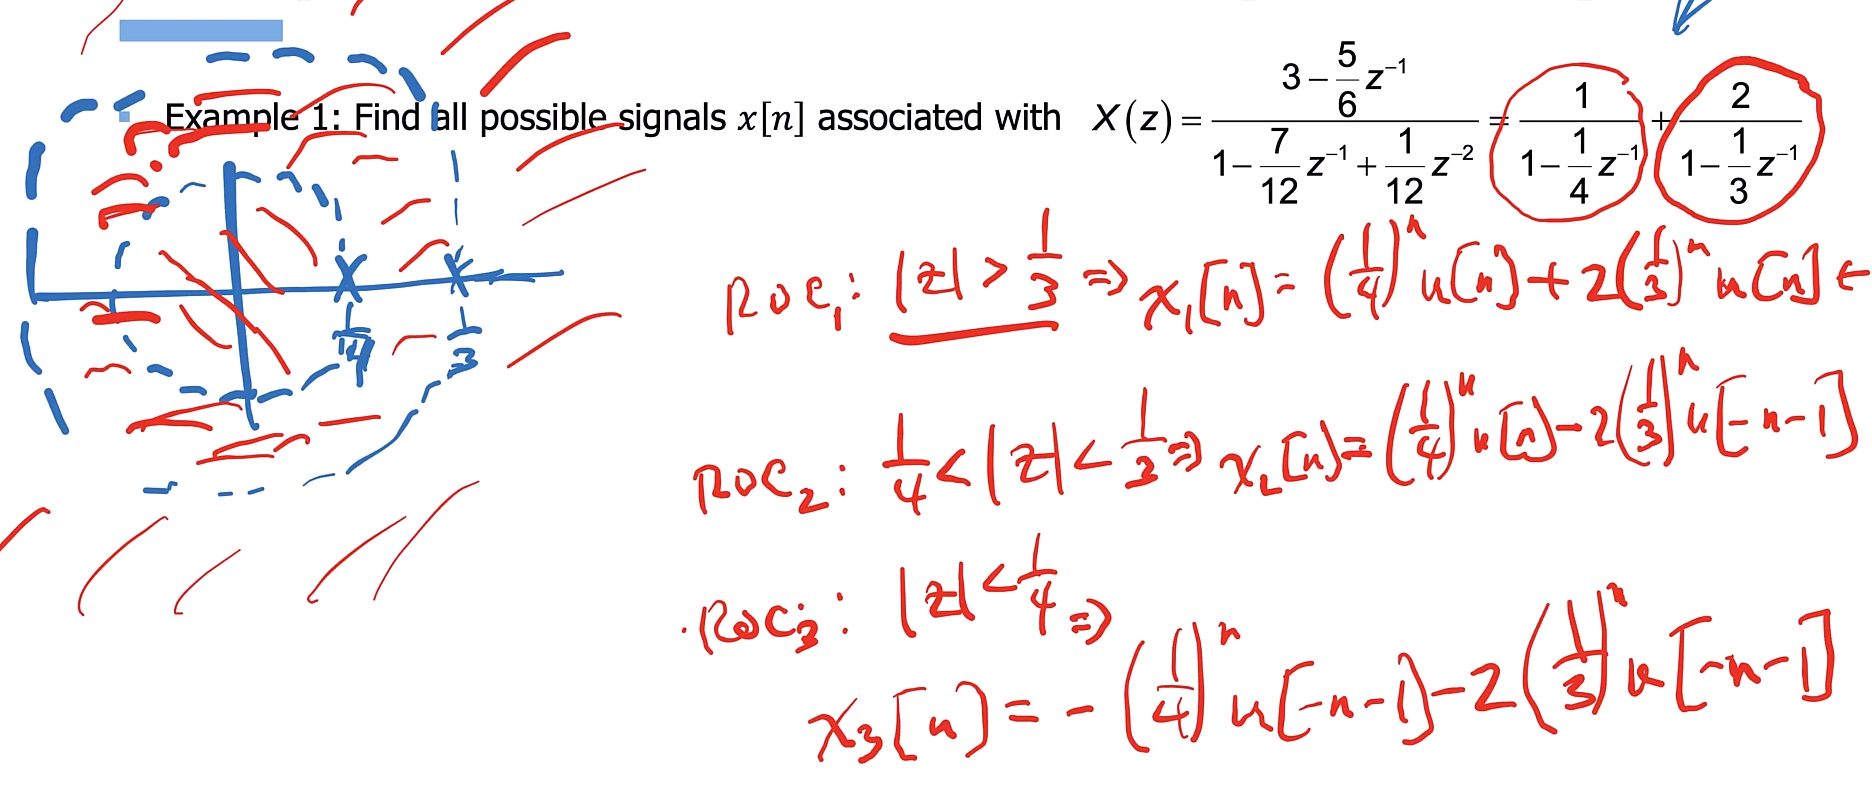 Example 1: Find all possible signals x[n] associated with X(z) = (3 − 5/6 z⁻¹) / (1 − 7/12 z⁻¹ + 1/12 z⁻²) = 1 / (1 − 1/4 z⁻¹) + 2 / (1 − 1/3 z⁻¹)
x x
1/4 1/3
ROC₁: |z| > 1/3 ⇒ x₁[n] = (1/4)ⁿ u[n] + 2(1/3)ⁿ u[n] ←
ROC₂: 1/4 < |z| < 1/3 ⇒ x₂[n] = (1/4)ⁿ u[n] − 2(1/3)ⁿ u[−n−1]
ROC₃: |z| < 1/4 ⇒
x₃[n] = −(1/4)ⁿ u[−n−1] − 2(1/3)ⁿ u[−n−1]